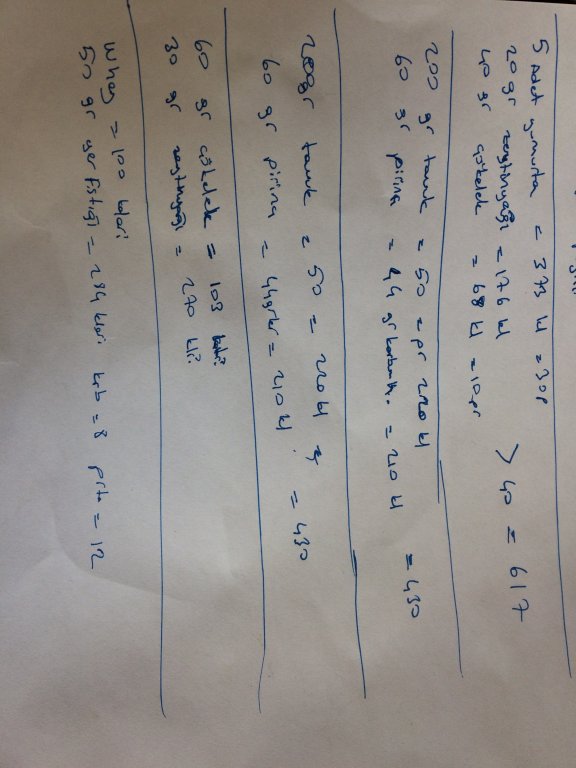 5 Adet yumurta = 373 kl = 30p
20 gr zeytinyağı = 176 kl
40 gr çökelek = 68 kl = 10pr > 40 = 617
200 gr tavuk = 50 = pr 220 kl
60 gr pirinç = 44 gr karbonh. = 210 kl = 430
200gr tavuk = 50 = 220 kl
60 gr pirinç = 44grkr = 210 kl. = 430
60 gr çökelek = 103
30 gr zeytinyağı = 270 kl
Whey = 100 klori
50 gr yerfıstığı = 284 klori krb = 8 prtn = 12